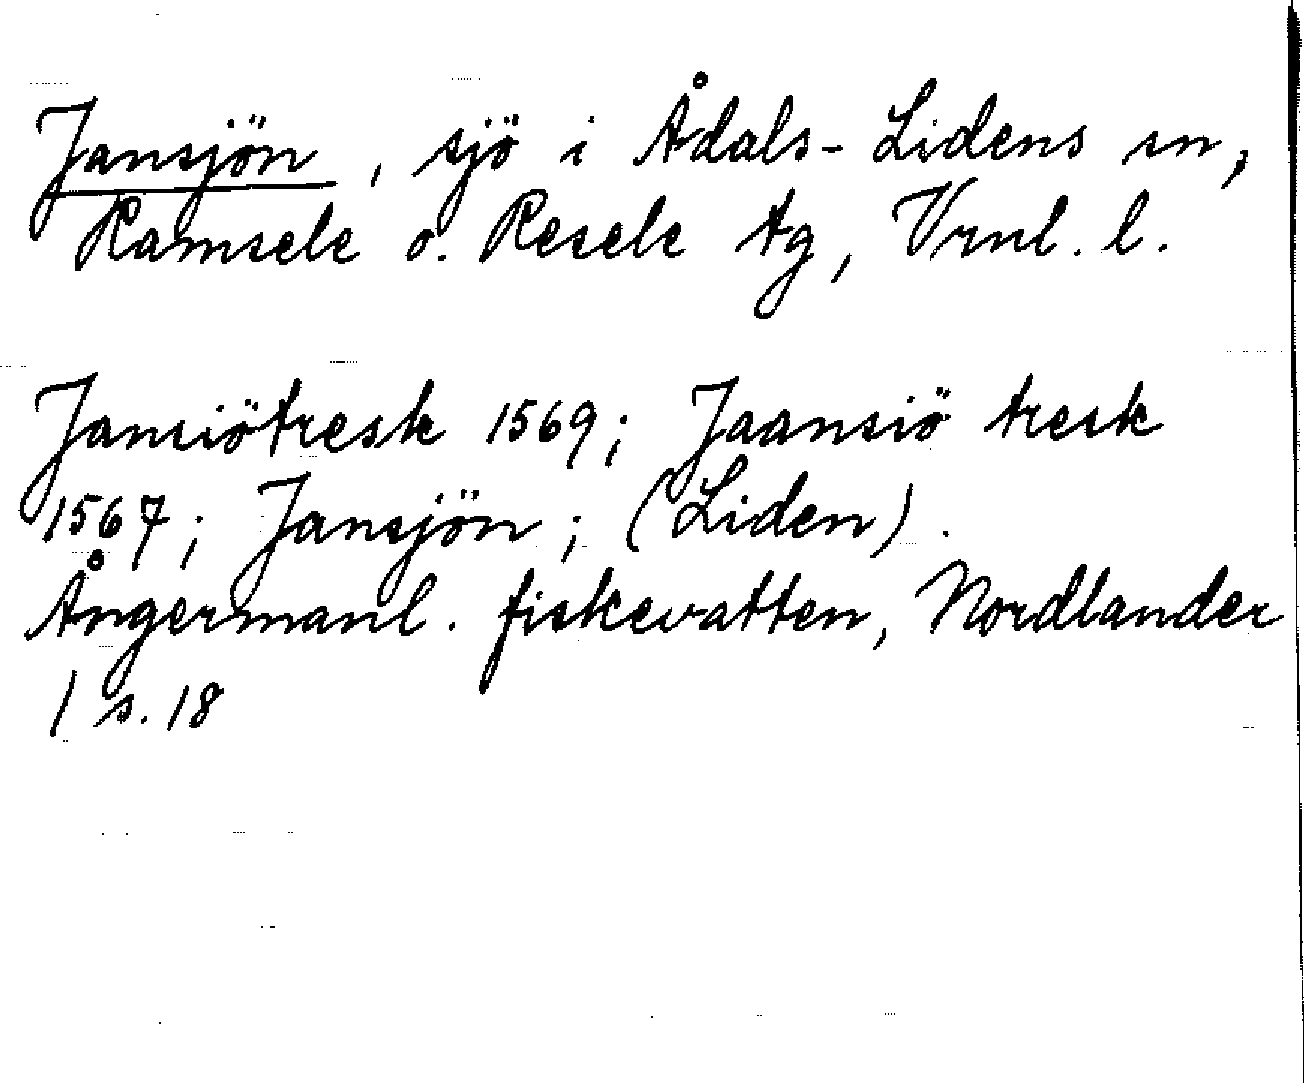 Jansjön, sjö i Ådals-Lidens sn,
Ramsele o. Resele tg, Vrnl. l.
Jansiötresk 1569; Jaansiö tresk
1567; Jansjön; (Liden).
Ångermanl. fiskevatten, Nordlander
1 s. 18